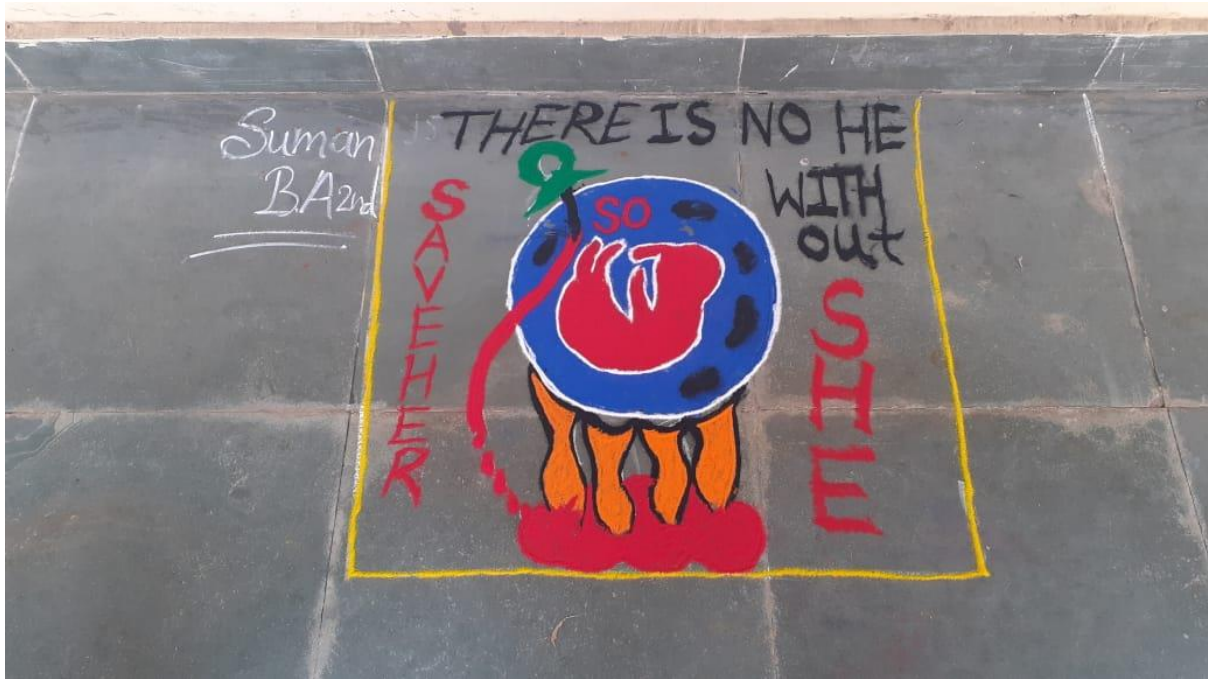 Suman
B.A 2nd
THERE IS NO HE
WITH
out
SHE
SO
SAVE HER